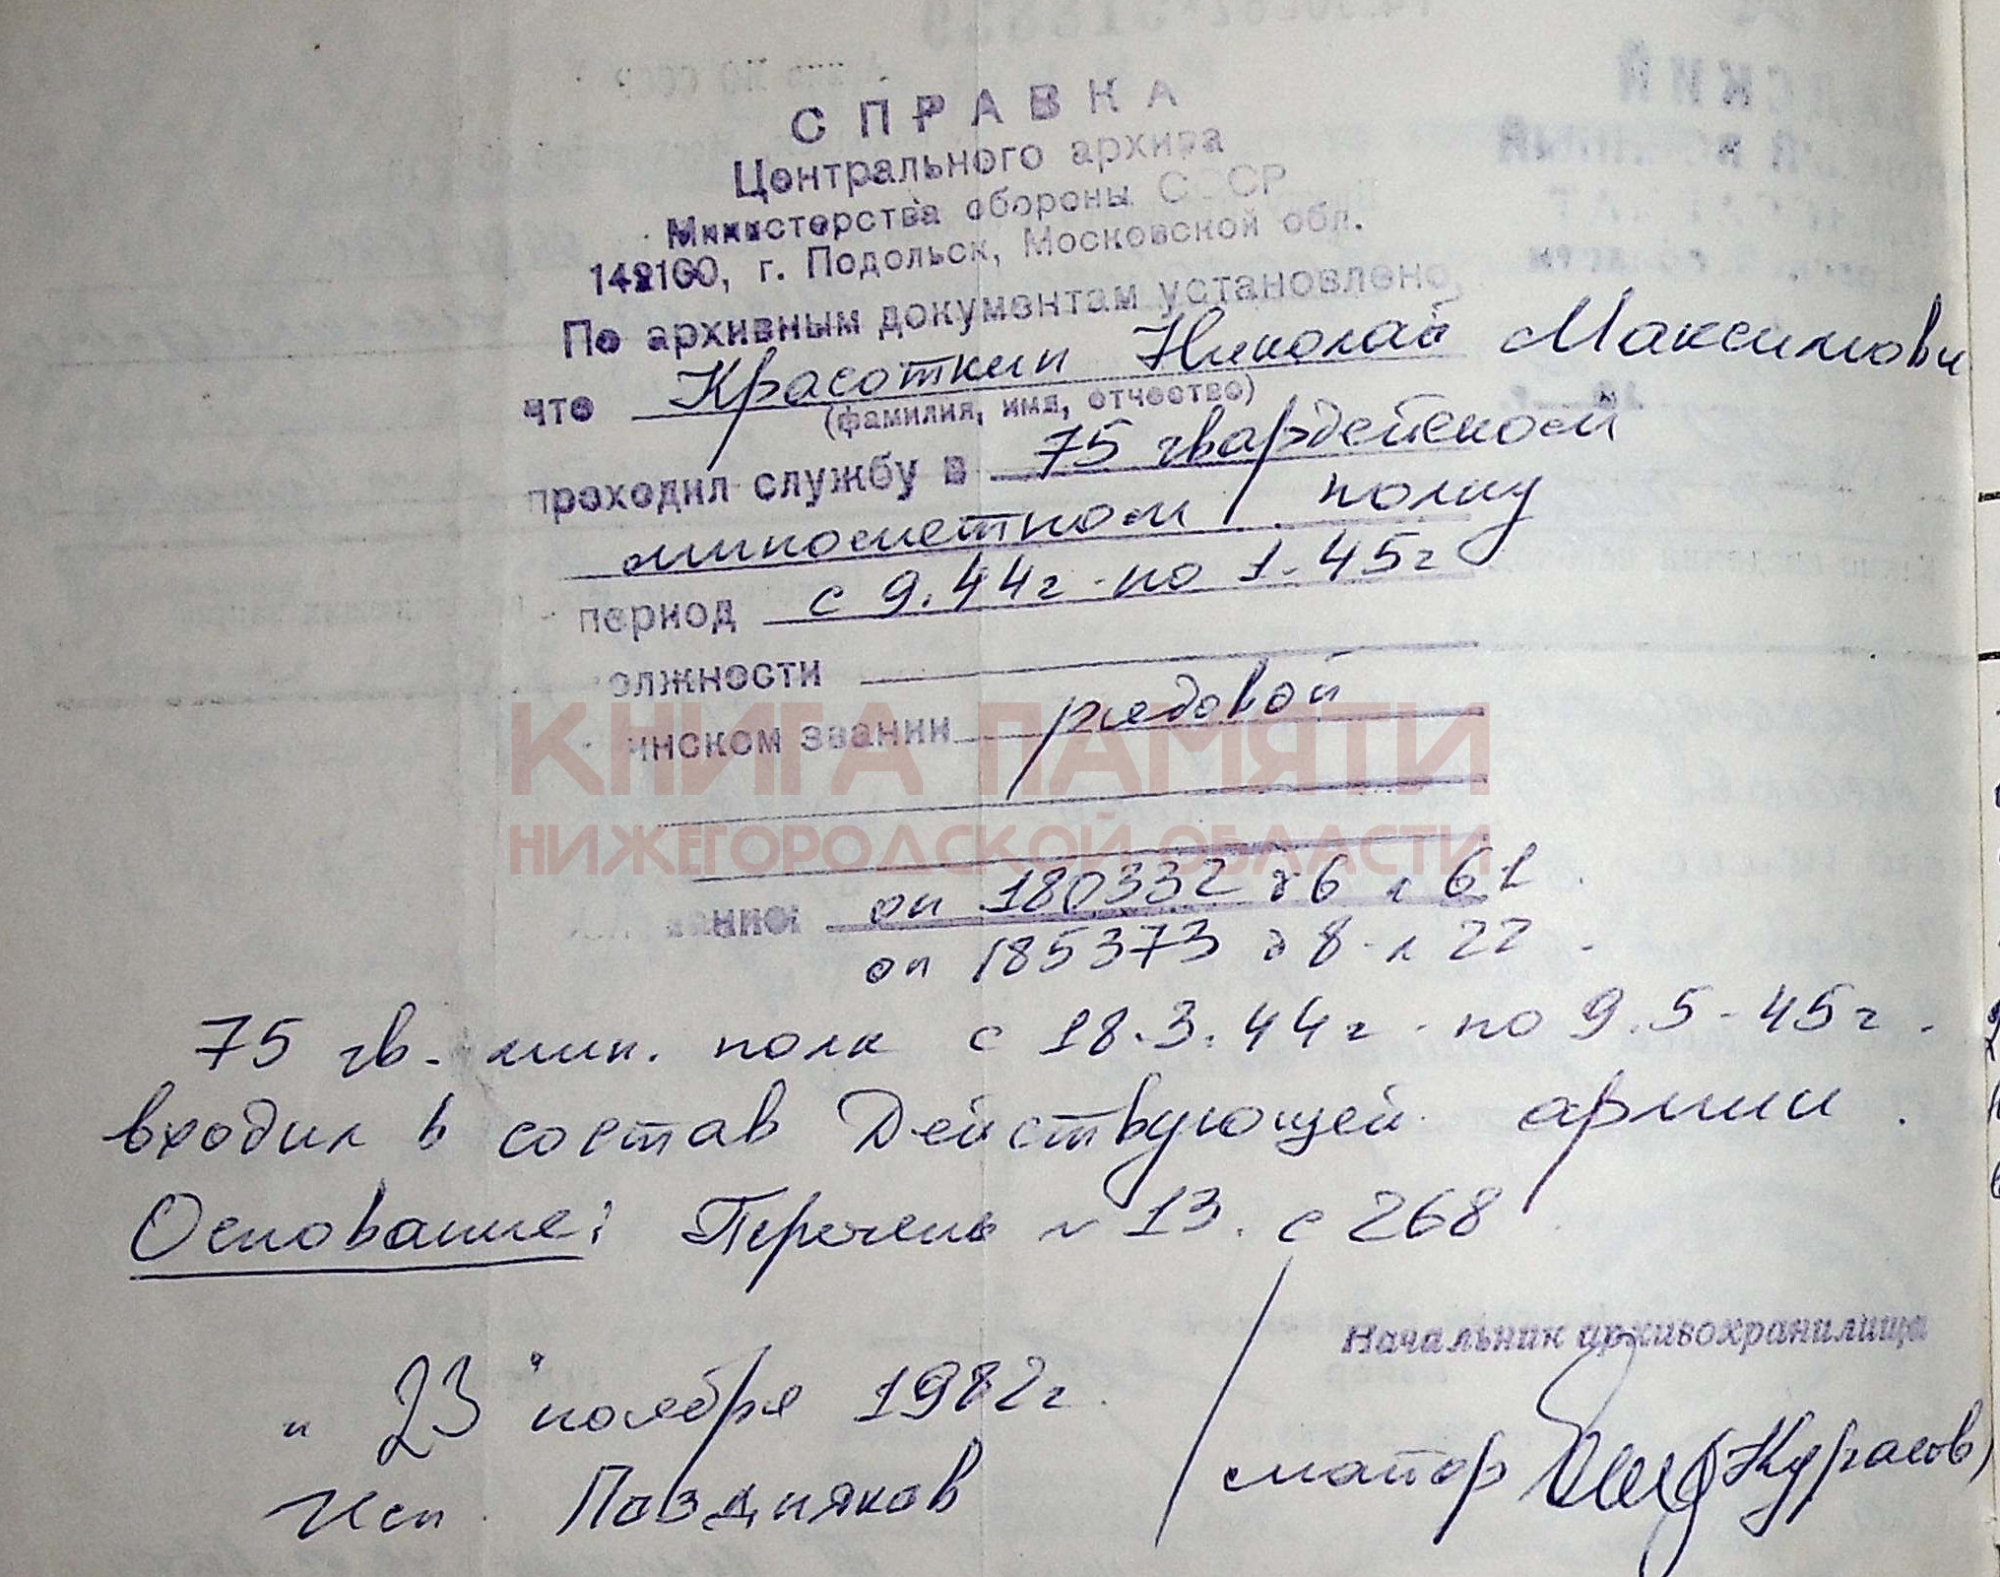 СПРАВКА
Центрального архива
Министерства обороны СССР
142100, г. Подольск, Московской обл.
По архивным документам установлено,
что Красоткин Николай Максимови
(фамилия, имя, отчество)
проходил службу в 75 гвардейском
минометном полку
период с 9.44г. по 1.45г
олжности
инском звании рядовой
КНИГА ПАМЯТИ
НИЖЕГОРОДСКОЙ ОБЛАСТИ
ание: оп 180332 д 6 л 61
оп 185373 д 8 л 22
75 гв. мин. полк с 18.3.44г. по 9.5.45г.
входил в состав Действующей армии.
Основание: Перечень № 13. с 268
Начальник архивохранилища
"23" ноября 1982г.
майор (Курасов)
Исп. Поздняков